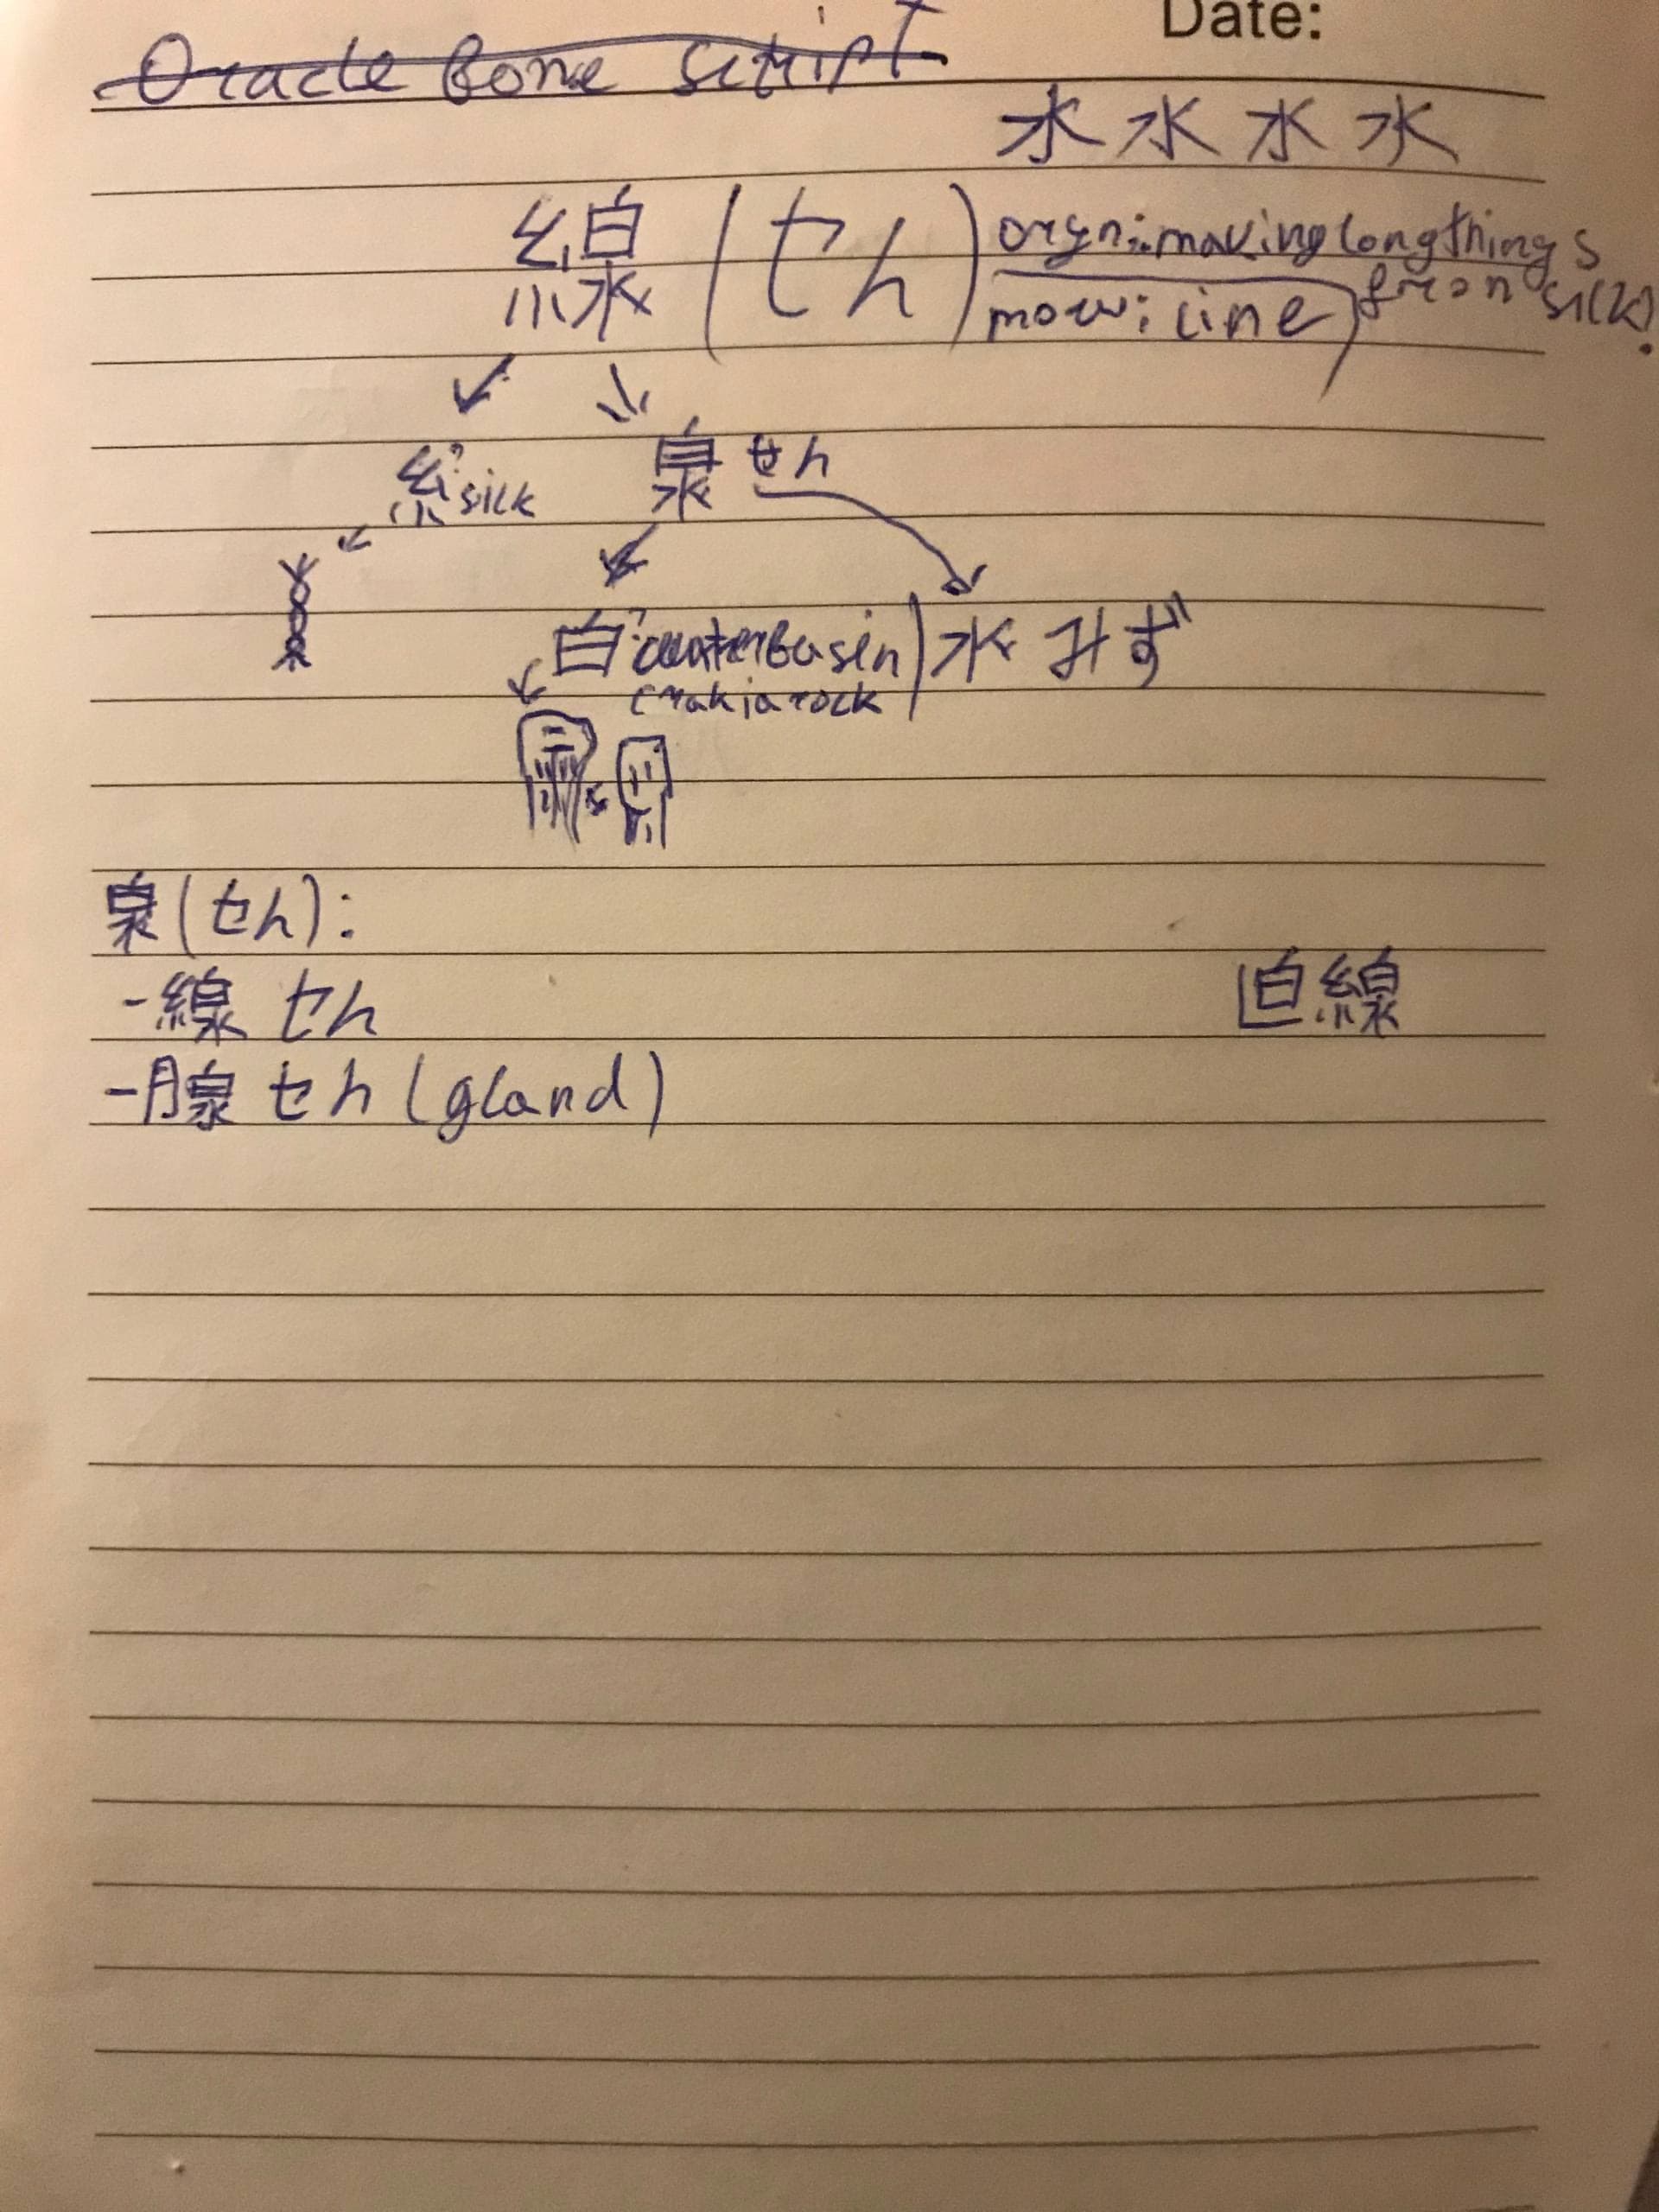 Date:
Oracle Bone Script
水 水 水 水
線 (せん) making long things from silk.
now: line
糸 silk 泉 せん
白 basin 水 みず
rock
泉(せん):
-線 せん
直線
-腺 せん (gland)